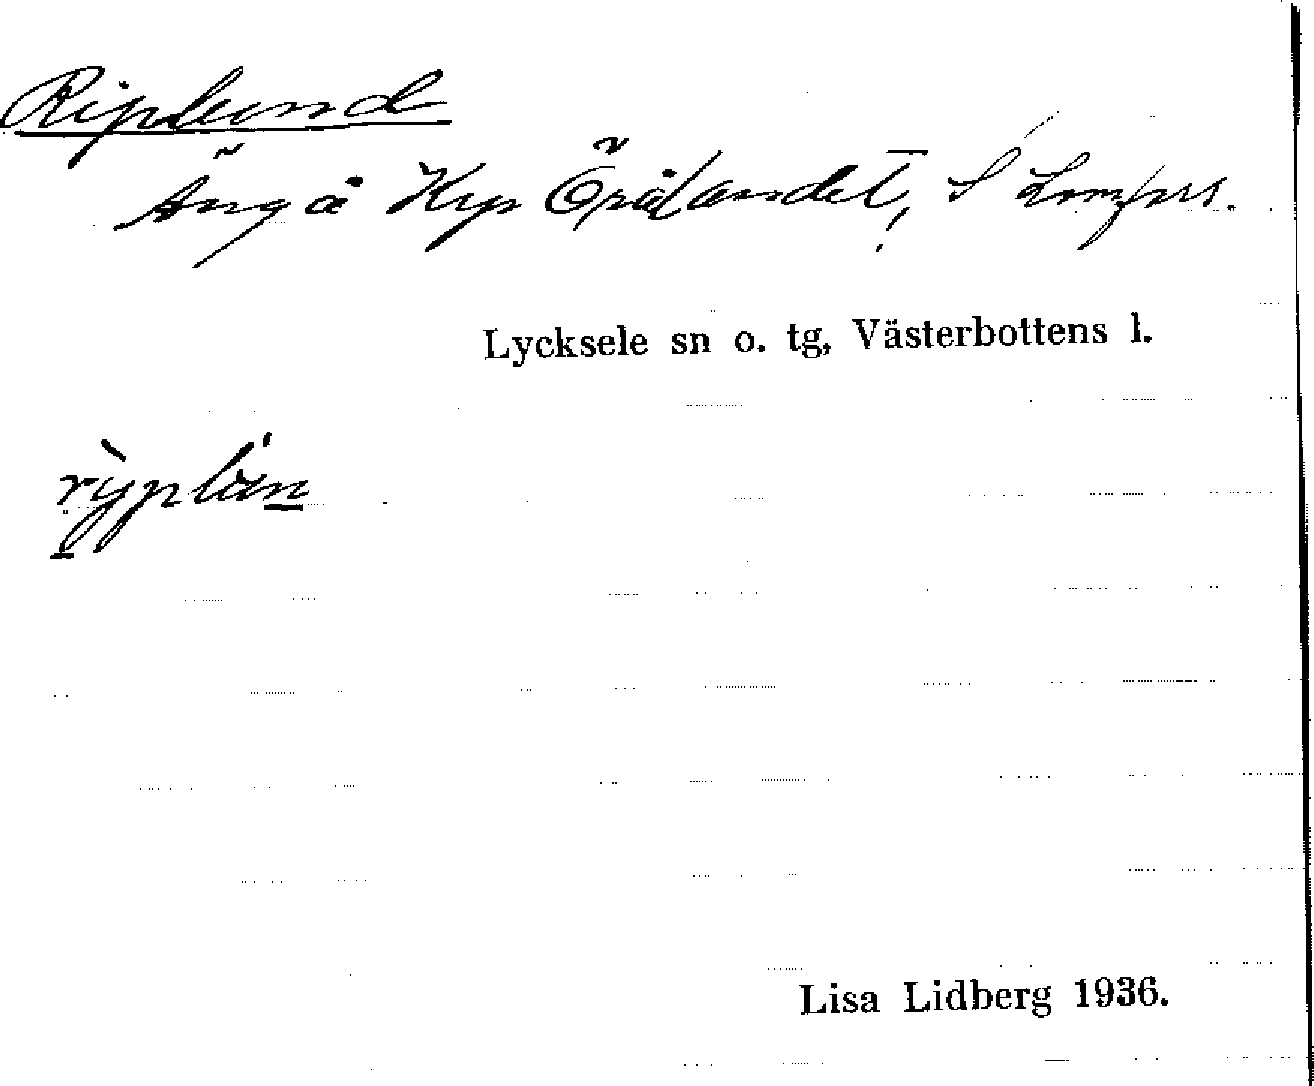 Riplund
Äng å Krp Öpålandet, S
Lycksele sn o. tg, Västerbottens l.
rỳplún
Lisa Lidberg 1936.